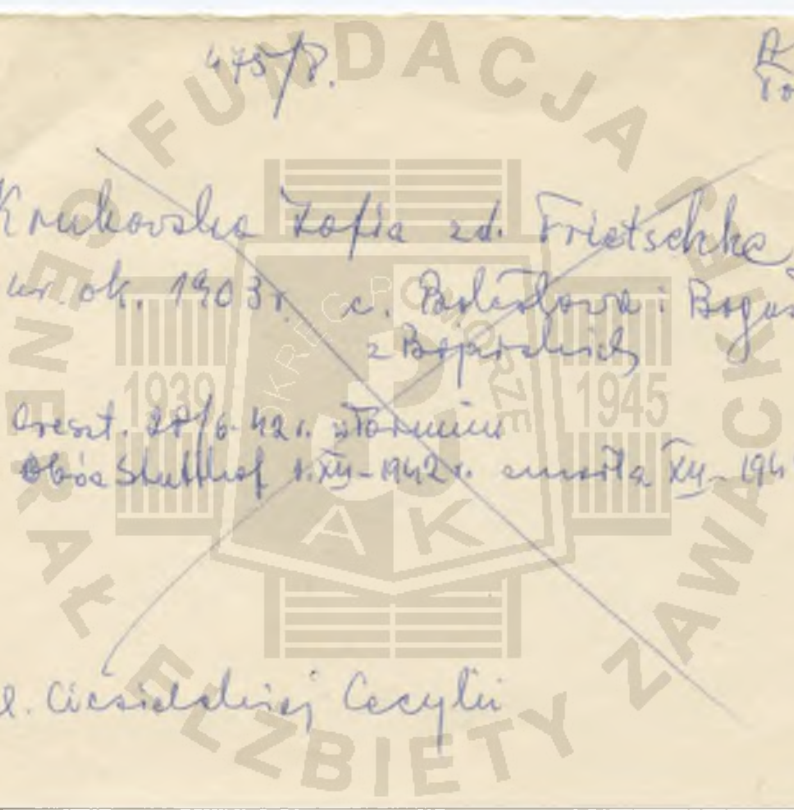 475/8.
Krukowska Zofia zd. Frietschke
ur. ok. 1903 r. c. Bolesława i
z
areszt. 28/6. 42 r. w Toruniu
Obóz Stutthof 1. XII - 1942 r. zmarła XII - 194
Ciesielskiej Cecylii
FUNDACJA
GENERAŁ ELŻBIETY ZAWACKIEJ
OKRĘG POMORZE
1939
1945
AK